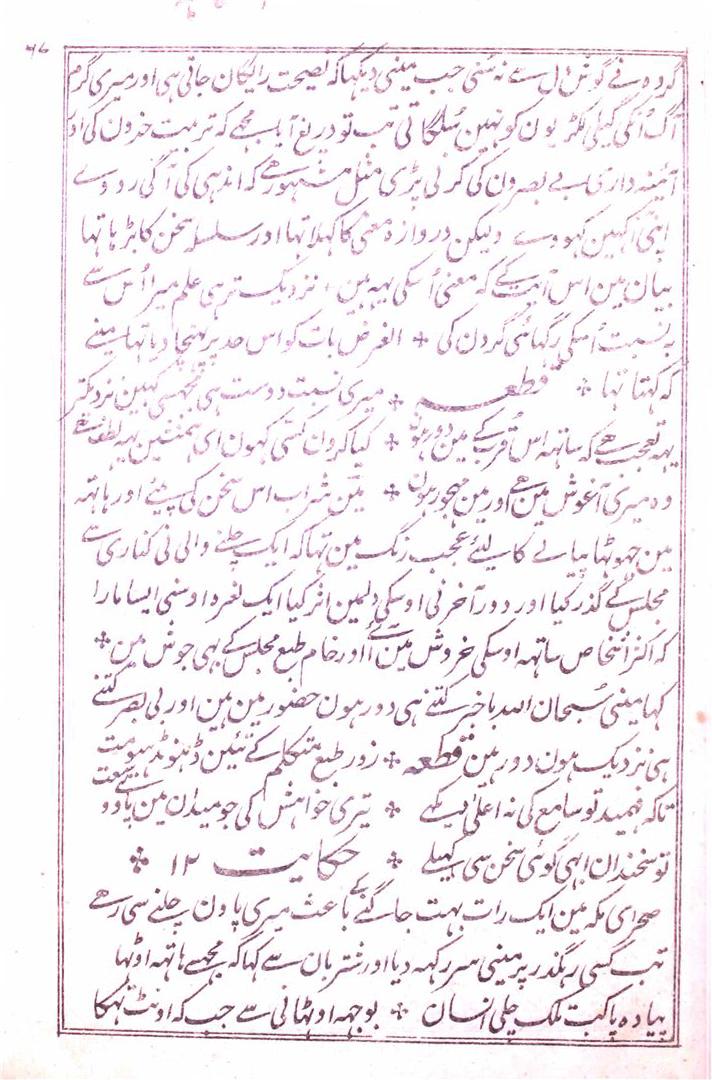 ۷۶
گروہ نے گوش دل سے نہ سُنی جب مینی دیکہا کہ نصیحت رایگان جاتی ہی اور میری گرم
آگ اُنکی گیلی لکڑیون کو نہین سُلگاتی تب تو دریغ آیا مجہے کہ تربیت خرون کی اور
آئینہ داری بے بصرون کی کرنی پڑی مثل مشہور ہے کہ اندہی کی آگی رووے
اپنی انکہین کہووے ولیکن دروازہ معنی کا کہلا تہا اور سلسلہ سخن کا بڑہا تہا
بیان مین اس آیت کے کہ معنی اُسکی یہہ ہین + نزدیک تر ہی علم میرا اُس سے
بہ نسبت اُسکی رگہائی گردن کی + الغرض بات کو اس حد پر پہنچا دیا تہا مینے
کہ کہتا تہا + قطعہ + میری نسبت دوست ہی مجہسی کہین نزدیکتر
یہہ تعجب ہے کہ ساتہہ اس قرب کے مین دور ہون + کیا کرون کسی کہون ای ہمنشین یہہ لطف ہے
وہ میری آغوش مین ہے اور مین مہجور ہون + مین شراب اس سخن کی پیئے اور ہاتہہ
مین جہوٹہا پیالے کا لیئے عجب رنگ مین تہا کہ ایک چلنے والی نی کناری سے
مجلس کے گذر کیا اور دور آخر نی اوسکی دلمین اثر کیا ایک نعرہ اوسنی ایسا مارا
کہ اکثر اشخاص ساتہہ اوسکی خروش مین آئے اور خام طبع مجلس کے بہی جوش مین +
کہا مینی سُبحان اللہ باخبر کتنے ہی دور ہون حضور مین ہین اور بی بصر کتنے
ہی نزدیک ہون دور ہین قطعہ + زور طبع متکلم کے تئین ڈہونڈہیو مت
تاکہ فہمید تو سامع کی نہ اعلیٰ دیکہے + تیری خواہش کی جو میدان مین پاوے وسعت
تو سخندان ابہی گوئی سخن سی کہیلے + حکایت ۱۲ +
صحرای مکہ مین ایک رات بہت جاگنے کے باعث میری پاون چلنے سی رہے
تب کسی رہگذر پر مینی سر رکہہ دیا اور شتربان سے کہا کہ مجہسے ہاتہہ اوٹہا
پیادہ پا کب تلک چلی انسان + بوجہہ اوٹہانی سے جب کہ اونٹ تہکا